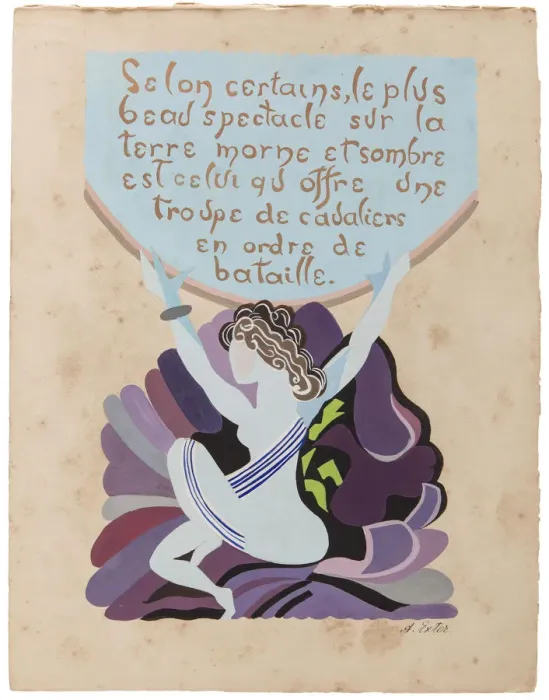 Selon certains, le plus
beau spectacle sur la
terre morne et sombre
est celui qu offre une
troupe de cavaliers
en ordre de
bataille.
A. Exter